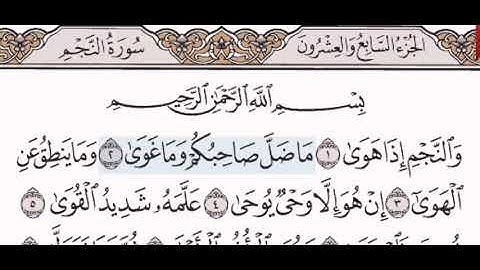 الجزء السابع والعشرون سورة النجم
بِسْمِ اللَّهِ الرَّحْمَٰنِ الرَّحِيمِ
وَالنَّجْمِ إِذَا هَوَىٰ ١ مَا ضَلَّ صَاحِبُكُمْ وَمَا غَوَىٰ ٢ وَمَا يَنطِقُ عَنِ
الْهَوَىٰ ٣ إِنْ هُوَ إِلَّا وَحْيٌ يُوحَىٰ ٤ عَلَّمَهُ شَدِيدُ الْقُوَىٰ ٥